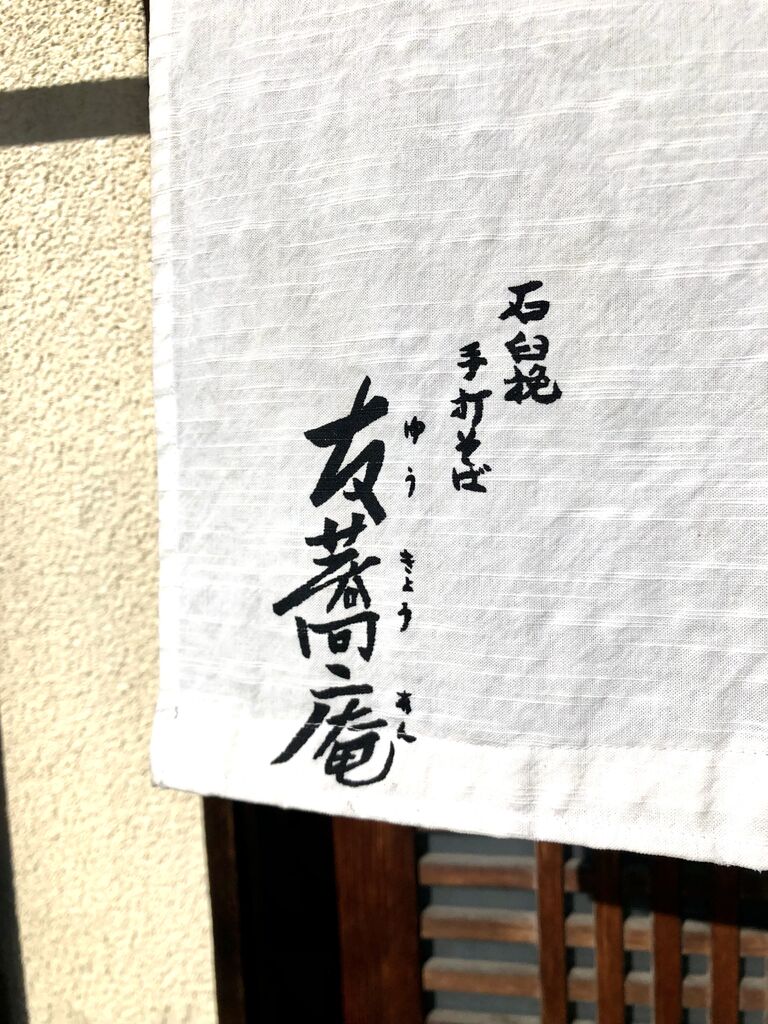 石臼挽
手打そば
友蕎庵
ゆうきょうあん